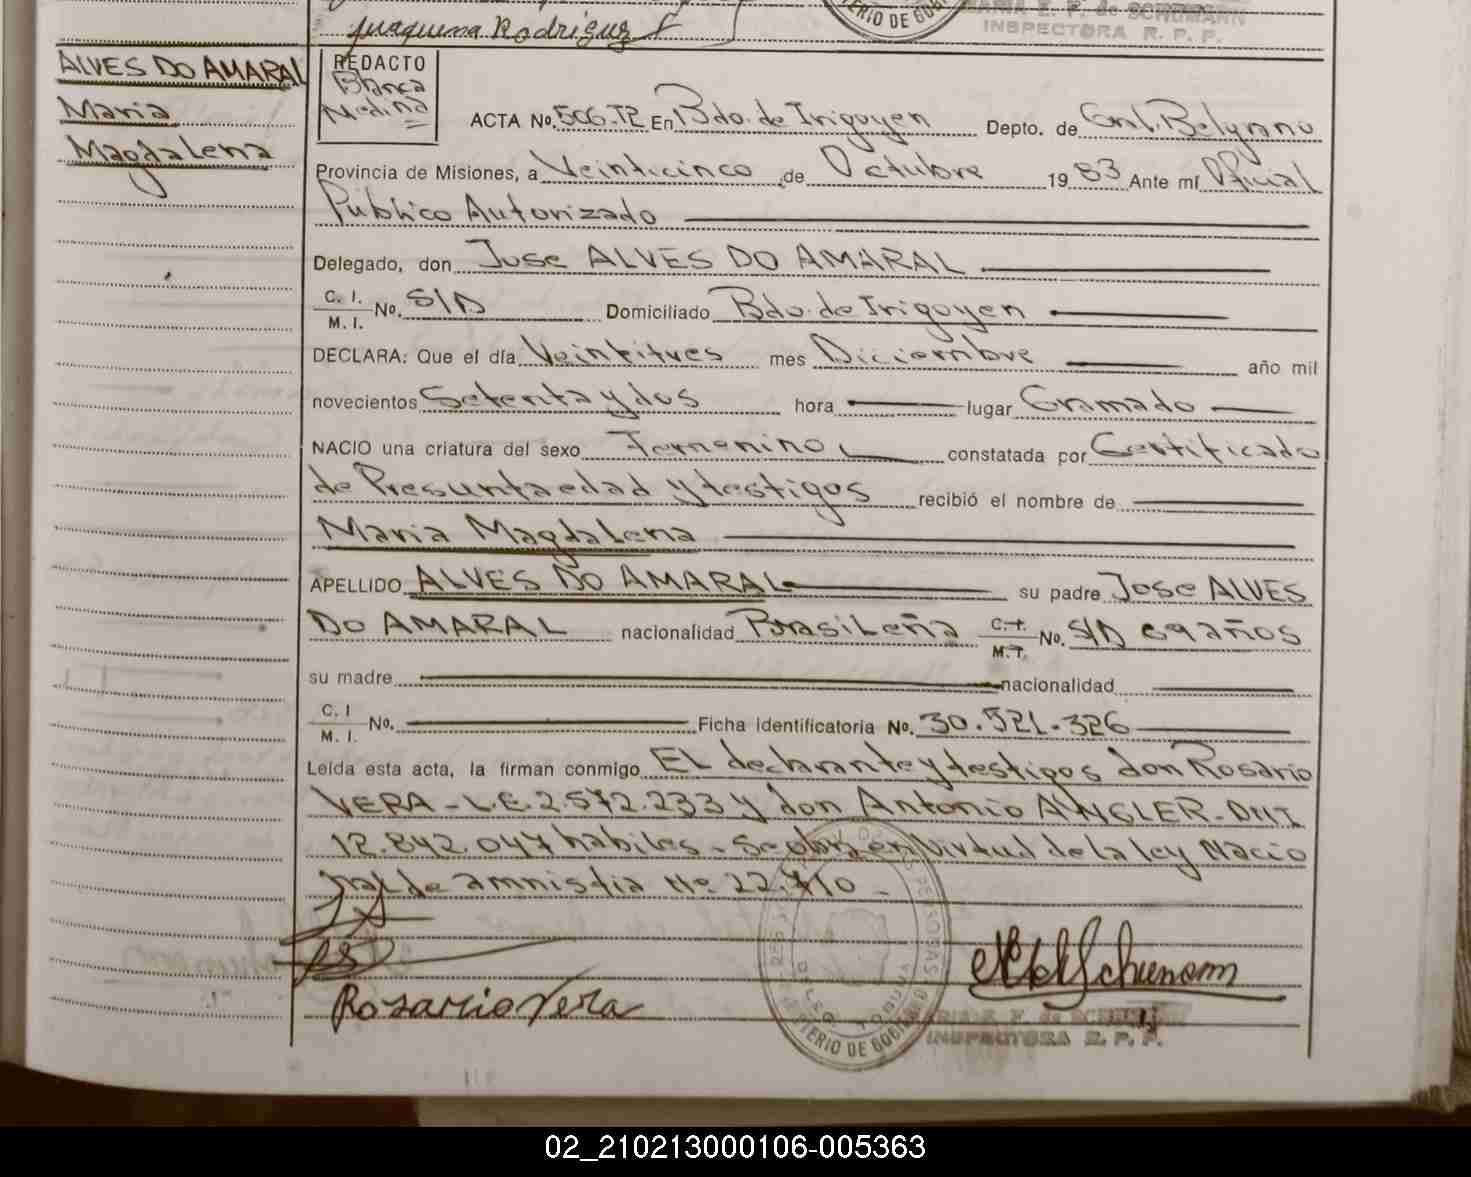 Joaquina Rodriguez
TERIO DE GOB
MARIA E. F. de SCHUMANN
INSPECTORA R. P. P.
ALVES DO AMARAL
Maria
Magdalena
REDACTO
Blanca
Medina
ACTA No. 506-T2 En Bdo. de Irigoyen Depto. de Gral. Belgrano
Provincia de Misiones, a Veinticinco de Octubre 1983 Ante mí Oficial
Público Autorizado
Delegado, don Jose ALVES DO AMARAL
C. I.
M. I. No. S/D Domiciliado Bdo. de Irigoyen
DECLARA: Que el día Veintitres mes Diciembre año mil
novecientos Setenta y dos hora lugar Gramado
NACIO una criatura del sexo Femenino constatada por Certificado
de Presunta edad y testigos recibió el nombre de
Maria Magdalena
APELLIDO ALVES DO AMARAL su padre Jose ALVES
DO AMARAL nacionalidad Brasileña C.I. M.I. No. S/D 69 años
su madre nacionalidad
C. I
M. I. No. Ficha identificatoria No. 30.521.326
Leída esta acta, la firman conmigo El declarante y testigos don Rosario
VERA - L.E. 2.572.233 y don Antonio ANGLER - DNI
12.842.047 habiles - Se labra en virtud de la ley Nacio
nal de amnistia No. 22.710 -
Rosario Vera
Schumann
MARIA E. F. de SCHUMANN
INSPECTORA R. P. P.
TERIO DE GOB
02_210213000106-005363